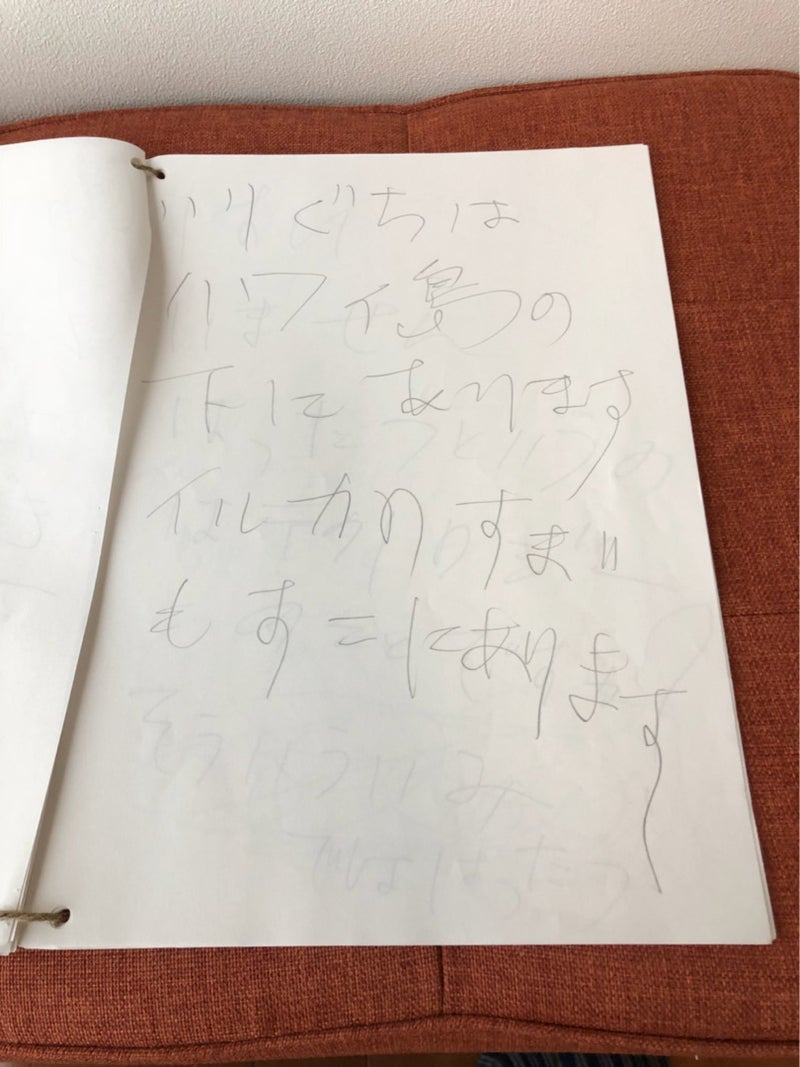 いりぐちは
ハワイ島の
下にあります
イルカのすまい
もすこにあります